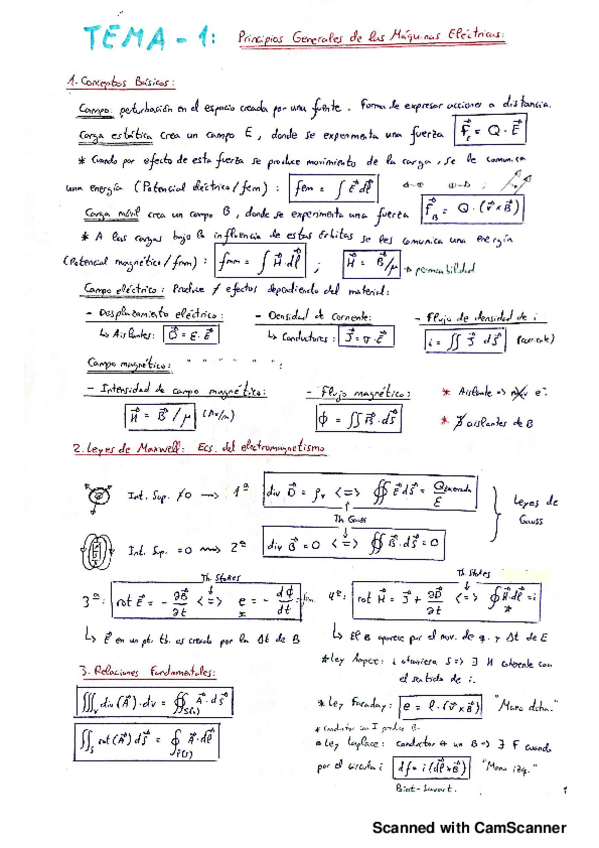 TEMA - 1: Principios Generales de las Máquinas Eléctricas:
1. Conceptos Básicos:
Campo: perturbación en el espacio creada por una fuente. Forma de expresar acciones a distancia.
Carga estática crea un campo E, donde se experimenta una fuerza F⃗ = Q · E⃗
* Cuando por efecto de esta fuerza se produce movimiento de la carga, se le comunica
una energía (Potencial eléctrico/fem): fem = ∫ E⃗ dl⃗
Carga móvil crea un campo B, donde se experimenta una fuerza F⃗_B = Q · (v⃗ × B⃗)
* A las cargas bajo la influencia de estas órbitas se les comunica una energía
(Potencial magnético/fmm): fmm = ∫ H⃗ · dl⃗ ; H⃗ = B⃗/μ → permeabilidad
Campo eléctrico: Produce ≠ efectos dependiendo del material:
- Desplazamiento eléctrico: - Densidad de Corriente: - Flujo de densidad de i
↳ Aislantes: D⃗ = ε · E⃗ ↳ Conductores: J⃗ = σ · E⃗ i = ∬ J⃗ dS⃗ (corriente)
Campo magnético: " " " " " ":
- Intensidad de campo magnético: - Flujo magnético: * Aislante => e⁻
H⃗ = B⃗/μ ϕ = ∬ B⃗ · dS⃗ * ∄ aislantes de B
2. Leyes de Maxwell: Ecs. del electromagnetismo
Int. Sup. ≠ 0 → 1ª div D⃗ = ρv <=> ∯ E⃗ dS⃗ = Q encerrada / ε Leyes de
Th Gauss Gauss
Int. Sup. = 0 → 2ª div B⃗ = 0 <=> ∯ B⃗ · dS⃗ = 0
Th. Stokes Th Stokes
3ª: rot E⃗ = - ∂B⃗/∂t <=> e = - dϕ/dt 4ª: rot H⃗ = J⃗ + ∂D⃗/∂t <=> ∮ H⃗ dl⃗ = i
*
↳ E⃗ en un pt. es creado por la Δt de B ↳ El B aparece por el mov. de q. y Δt de E
3. Relaciones Fundamentales: * Ley Ampere: i atraviesa S => ∃ H coherente con
el sentido de i.
∭v div(A⃗) · dv = ∯S(v) A⃗ · dS⃗ * Ley Faraday: e = l · (v⃗ × B⃗) "Mano dcha."
* Conductor con I produce B.
∬S rot(A⃗) dS⃗ = ∮ A⃗ · dl⃗ * Ley Laplace: conductor en un B => ∃ F cuando
por él circula i df = i (dl⃗ × B⃗) "Mano izq."
Biot-Savart.
1
Scanned with CamScanner